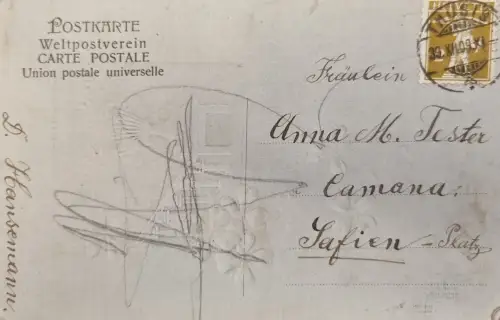 POSTKARTE
Weltpostverein
CARTE POSTALE
Union postale universelle
THUSIS
Fräulein
Anna M. Tester
Camana.
Safien-Platz
D. Hansemann.